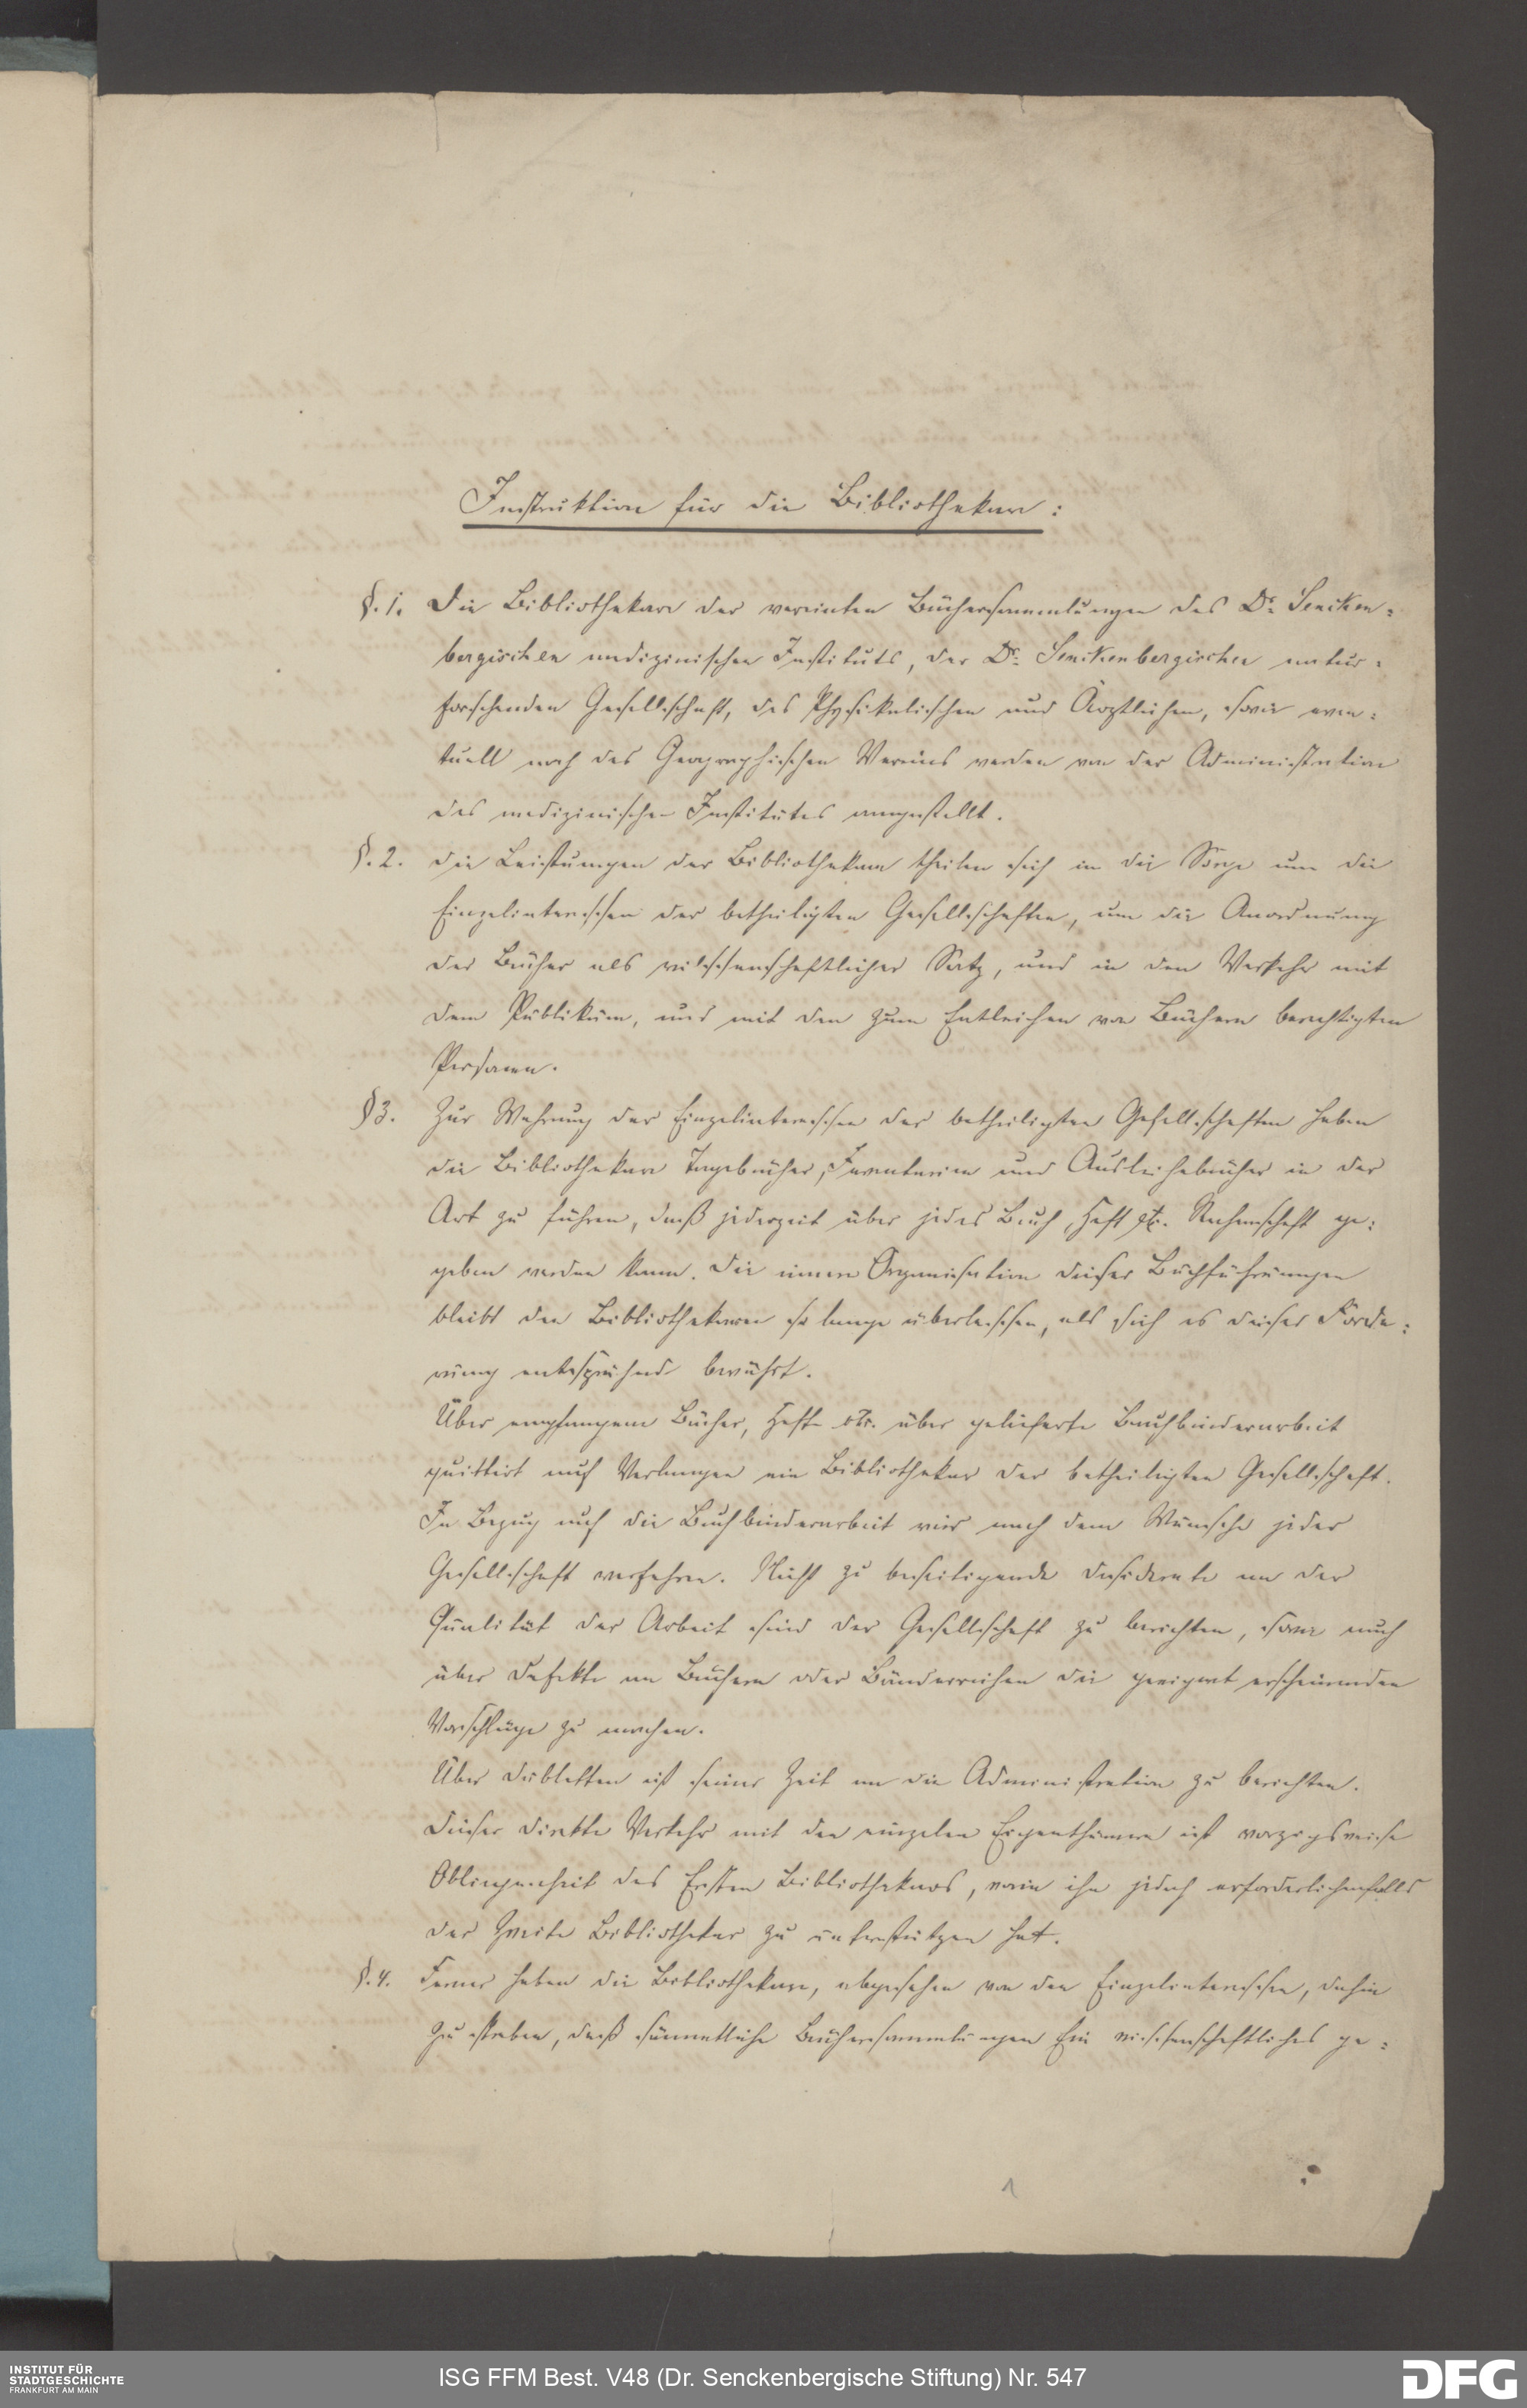 Instruktion für die Bibliothekare:
§. 1. Die Bibliothekare der vereinten Büchersammlungen des Dr. Sencken-
bergischen medizinischen Instituts, der Dr. Senckenbergischen natur-
forschenden Gesellschaft, des Physikalischen und Ärztlichen, sowie even-
tuell noch des Geographischen Vereins werden von der Administration
des medizinischen Institutes angestellt.
§. 2. Die Leistungen der Bibliothekare theilen sich in die Sorge um die
Einzelinteressen der betheiligten Gesellschaften, um die Anordnung
der Bücher als wissenschaftlicher Satz, und in den Verkehr mit
dem Publikum, und mit den zum Entleihen von Büchern berechtigten
Personen.
§ 3. Zur Wahrung der Einzelinteressen der betheiligten Gesellschaften haben
die Bibliothekare Tagebücher, Inventarien und Ausleihebücher in der
Art zu führen, daß jederzeit über jedes Buch, Heft etc. Rechenschaft ge-
geben werden kann. Die innere Organisation dieser Buchführungen
bleibt den Bibliothekaren so lange überlassen, als sich es dieser Forde-
rung entsprechend bewährt.
Über empfangene Bücher, Hefte etc. über gelieferte Buchbinderarbeit
quittirt auf Verlangen ein Bibliothekar der betheiligten Gesellschaft.
In Bezug auf die Buchbinderarbeit wird nach dem Wunsche jeder
Gesellschaft verfahren. Nicht zu beseitigende Desiderate an der
Qualität der Arbeit sind der Gesellschaft zu berichten, sowie auch
über Defekte an Büchern oder Bänderreihen die geeignet erscheinenden
Vorschläge zu machen.
Über Dubletten ist seiner Zeit an die Administration zu berichten.
Dieser direkte Verkehr mit den einzelen Eigenthümern ist vorzugsweise
Obliegenheit des Ersten Bibliothekars, worin ihn jedoch erforderlichenfalls
der Zweite Bibliothekar zu unterstützen hat.
§. 4. Ferner haben die Bibliothekare, abgesehen von den Einzelinteressen, dahin
zu streben, daß sämmtliche Büchersammlungen Ein wissenschaftliches ge-
1
INSTITUT FÜR
STADTGESCHICHTE
FRANKFURT AM MAIN
ISG FFM Best. V48 (Dr. Senckenbergische Stiftung) Nr. 547
DFG